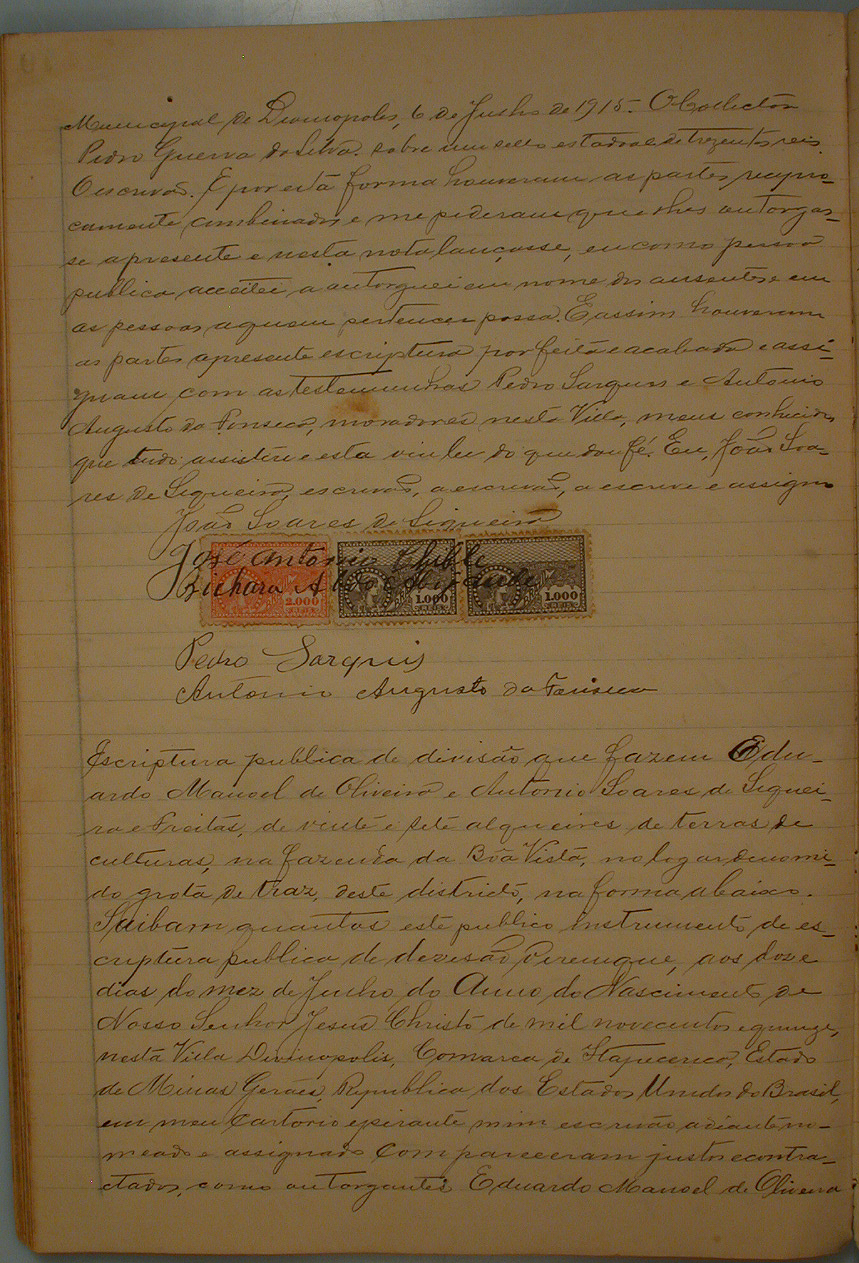 Municipal de Divinopolis, 6 de Junho de 1915. O Collector
Pedro Guerra da Silva. sobre um sello estadoal de trezentos reis.
O escrivão. E por esta forma houveram as partes recipro-
camente combinados e me pederam que lhes outorgas-
se a presente e nesta nota lançasse, eu como pessoa
publica acceitei a outorguei em nome dos ausentes e em
as pessoas a quem pertencer possa. E assim houveram
as partes a presente escriptura por feita e acabada e assi-
gnam com as testemunhas Pedro Sarquis e Antonio
Augusto da Fonseca, moradores nesta Villa, meus conhecidos
que tudo assistire e esta viu ler do que dou fé. Eu, João Soa-
res de Siqueira, escrivão, a escrivão, a escreve e assigno
João Soares de Siqueira
José Antonio Chible
Bichara Abdo
2.000 REIS 1.000 REIS 1.000 REIS
Pedro Sarquis
Antonio Augusto da Fonseca
Escriptura publica de divisão que fazem Edu-
ardo Manoel de Oliveira e Antonio Soares de Siquei-
ra e Freitas, de vinte e sete alqueires de terras de
culturas, na fazenda da Bôa Vista, no logar denomi-
do grota de traz, deste districto, na forma abaixo.
Saibam quantos este publico instrumento de es-
criptura publica de devesão virem que, aos doze
dias do mez de Junho do Anno do Nascimento de
Nosso Senhor Jesus Christo de mil novecentos e quinze,
nesta Villa Divinopolis, Comarca de Itapecerica, Estado
de Minas Geraes, Republica dos Estados Unidos do Brasil,
em meu Cartorio e pirante mim escrivão adiante no-
meado e assignado compareceram justos e contra-
ctados, como outorgantes Eduardo Manoel de Oliveira